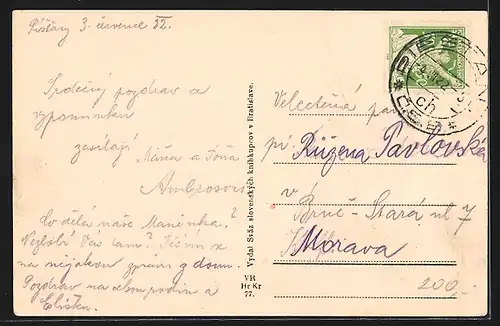 Píšťany 3. července 22.
Srdečný pozdrav a
vzpomínku
zasílají
Míňa a Tóňa
Ambrosovi
Co dělá naše Mařenka?
Nezlobí Vás tam? Těším se
na nějakou zprávu z domu.
Pozdrav na celou rodinu a
Elišku.
Vydal Sväz slovenských kníhkupcov v Bratislave.
VR
Hr Kr
77.
PIEŠŤANY
ČSR
Velectěná paní
pí: Růžena Pavlovská
v
Brně - Stará ul 7
Morava
200.-